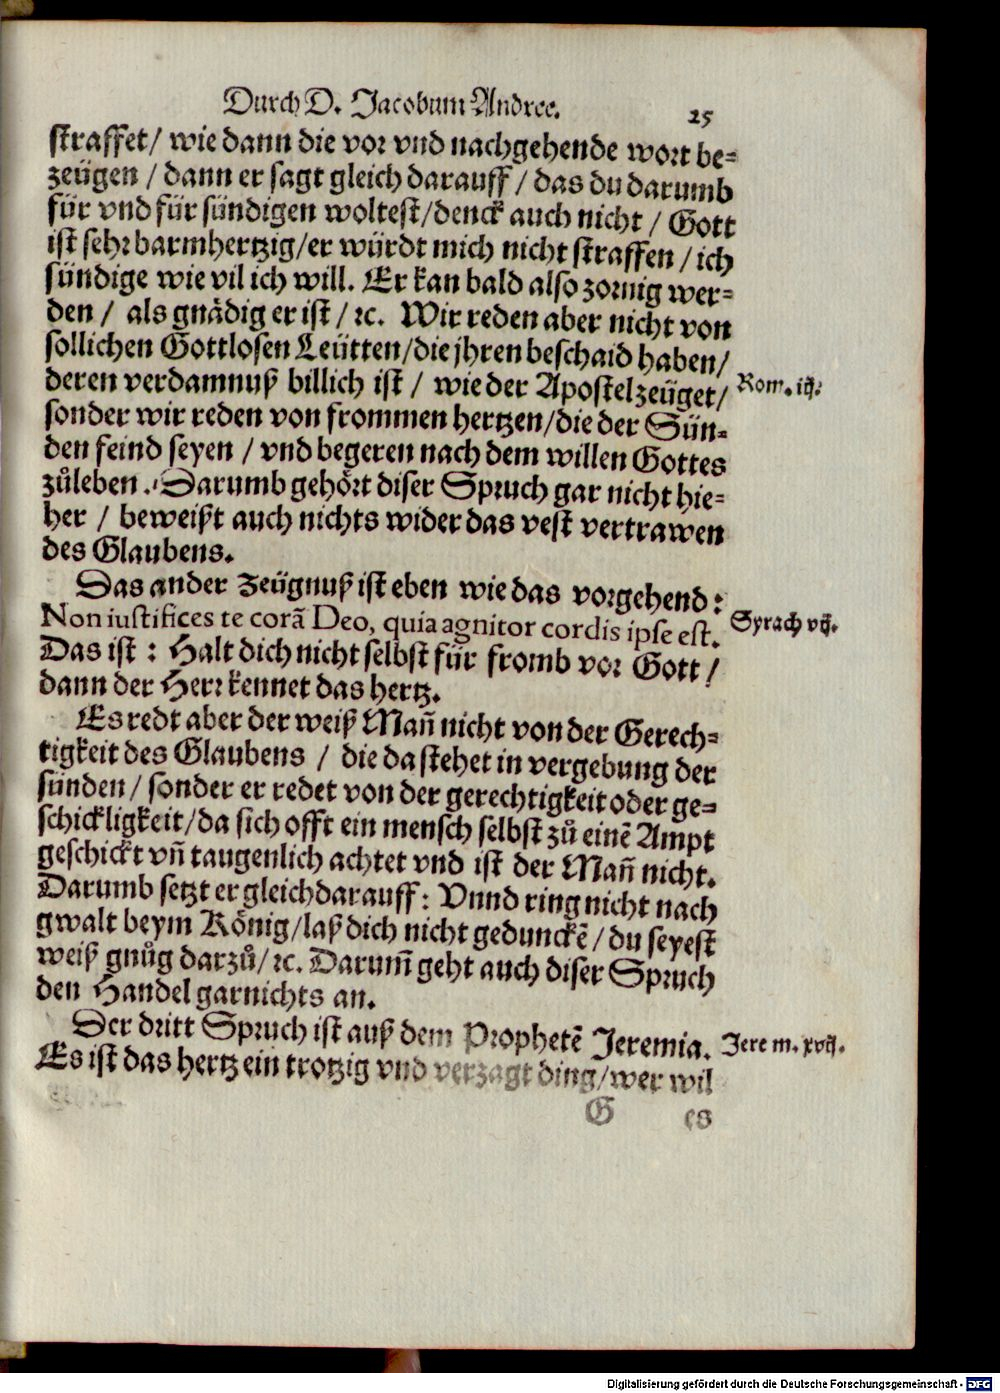 Durch D. Jacobum Andree. 25
straffet/ wie dann die vor vnd nachgehende wort be=
zeügen / dann er sagt gleich darauff / das du darumb
für vnd für sündigen woltest/denck auch nicht / Gott
ist sehr barmhertzig/er würdt mich nicht straffen / ich
sündige wie vil ich will. Er kan bald also zornig wer=
den / als gnädig er ist / ꝛc. Wir reden aber nicht von
sollichen Gottlosen Leütten/die jhren beschaid haben/
deren verdamnuß billich ist / wie der Apostel zeüget/ Rom. iij.
sonder wir reden von frommen hertzen/die der Sün=
den feind seyen / vnd begeren nach dem willen Gottes
zůleben. Darumb gehört diser Spruch gar nicht hie=
her / beweißt auch nichts wider das vest vertrawen
des Glaubens.
Das ander Zeügnuß ist eben wie das vorgehend:
Non iustifices te corã Deo, quia agnitor cordis ipse est. Syrach vij.
Das ist : Halt dich nicht selbst für fromb vor Gott /
dann der Herr kennet das hertz.
Es redt aber der weiß Mañ nicht von der Gerech=
tigkeit des Glaubens / die da stehet in vergebung der
sünden / sonder er redet von der gerechtigkeit oder ge=
schickligkeit/da sich offt ein mensch selbst zů einẽ Ampt
geschickt vñ taugenlich achtet vnd ist der Mañ nicht.
Darumb setzt er gleich darauff : Vnnd ring nicht nach
gwalt beym König/laß dich nicht gedunckẽ / du seyest
weiß gnůg darzů/ ꝛc. Darum̃ geht auch diser Spruch
den Handel gar nichts an.
Der dritt Spruch ist auß dem Prophetẽ Jeremia. Jerem. xvij.
Es ist das hertz ein trotzig vnd verzagt ding/wer wil
G es
Digitalisierung gefördert durch die Deutsche Forschungsgemeinschaft - DFG